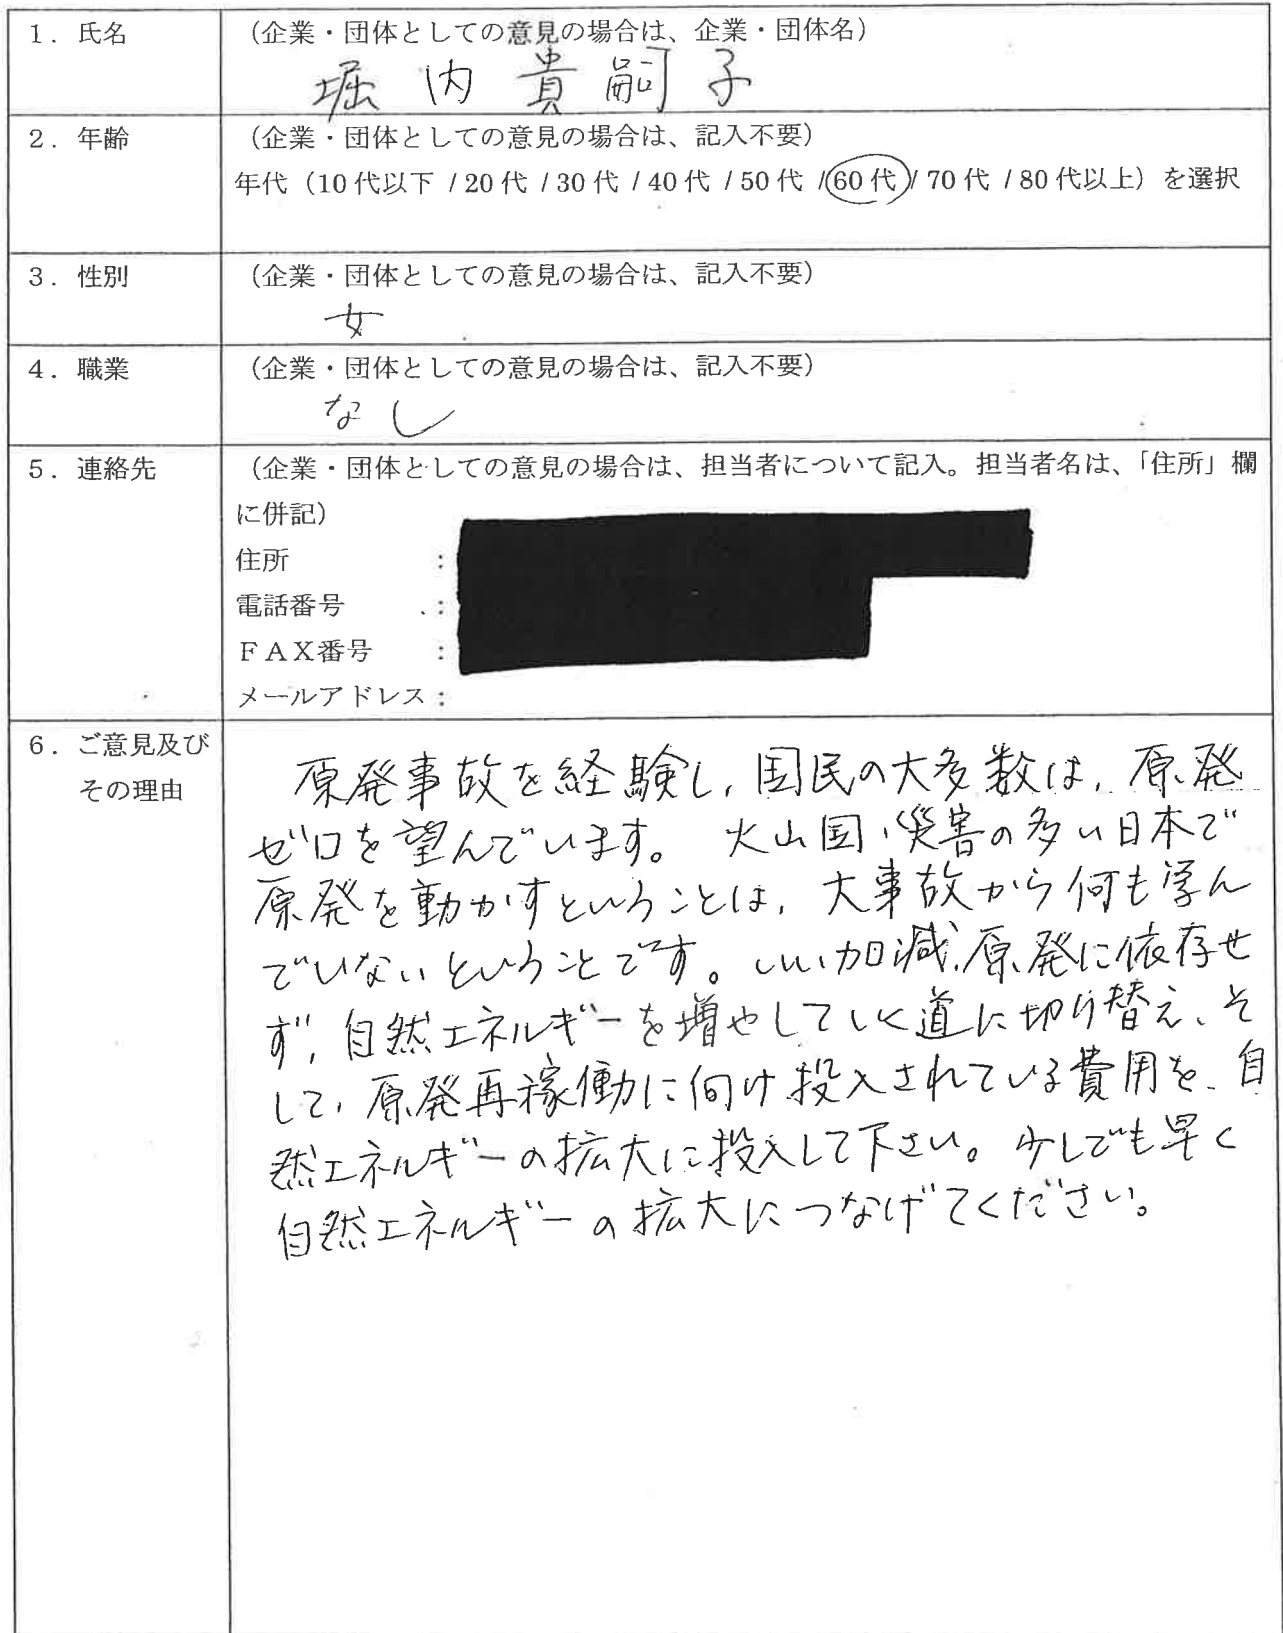 1．氏名
（企業・団体としての意見の場合は、企業・団体名）
堀内貴嗣子
2．年齢
（企業・団体としての意見の場合は、記入不要）
年代（10代以下 / 20代 / 30代 / 40代 / 50代 / 60代 / 70代 / 80代以上）を選択
3．性別
（企業・団体としての意見の場合は、記入不要）
女
4．職業
（企業・団体としての意見の場合は、記入不要）
なし
5．連絡先
（企業・団体としての意見の場合は、担当者について記入。担当者名は、「住所」欄
に併記）
住所：
電話番号：
ＦＡＸ番号：
メールアドレス：
6．ご意見及び
その理由
原発事故を経験し、国民の大多数は、原発
ゼロを望んでいます。火山国、災害の多い日本で
原発を動かすということは、大事故から何も学ん
でいないということです。いい加減、原発に依存せ
ず、自然エネルギーを増やしていく道に切り替え、そ
して、原発再稼働に向け投入されている費用を、自
然エネルギーの拡大に投入して下さい。少しでも早く
自然エネルギーの拡大につなげてください。